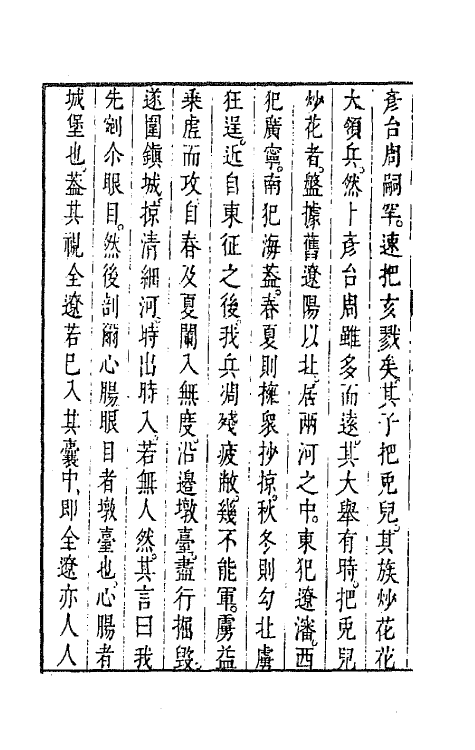 彥台周嗣罕。速把亥戮矣。其子把兎兒。其族炒花花
大領兵。然卜彥台周雖多而遠。其大舉有時。把兎兒
炒花者。盤據舊遼陽以北。居兩河之中。東犯遼瀋。西
犯廣寧。南犯海葢。春夏則擁衆抄掠。秋冬則勾北虜
狂逞。近自東征之後。我兵凋殘疲敝。幾不能軍。虜益
乘虛而攻。自春及夏闌入無度。沿邊墩臺。盡行掘毀。
遂圍鎮城。掠清細河。時出時入。若無人然。其言曰我
先剜尒眼目。然後剖爾心腸。眼目者墩臺也。心腸者
城堡也。葢其視全遼若已入其囊中、即全遼亦人人